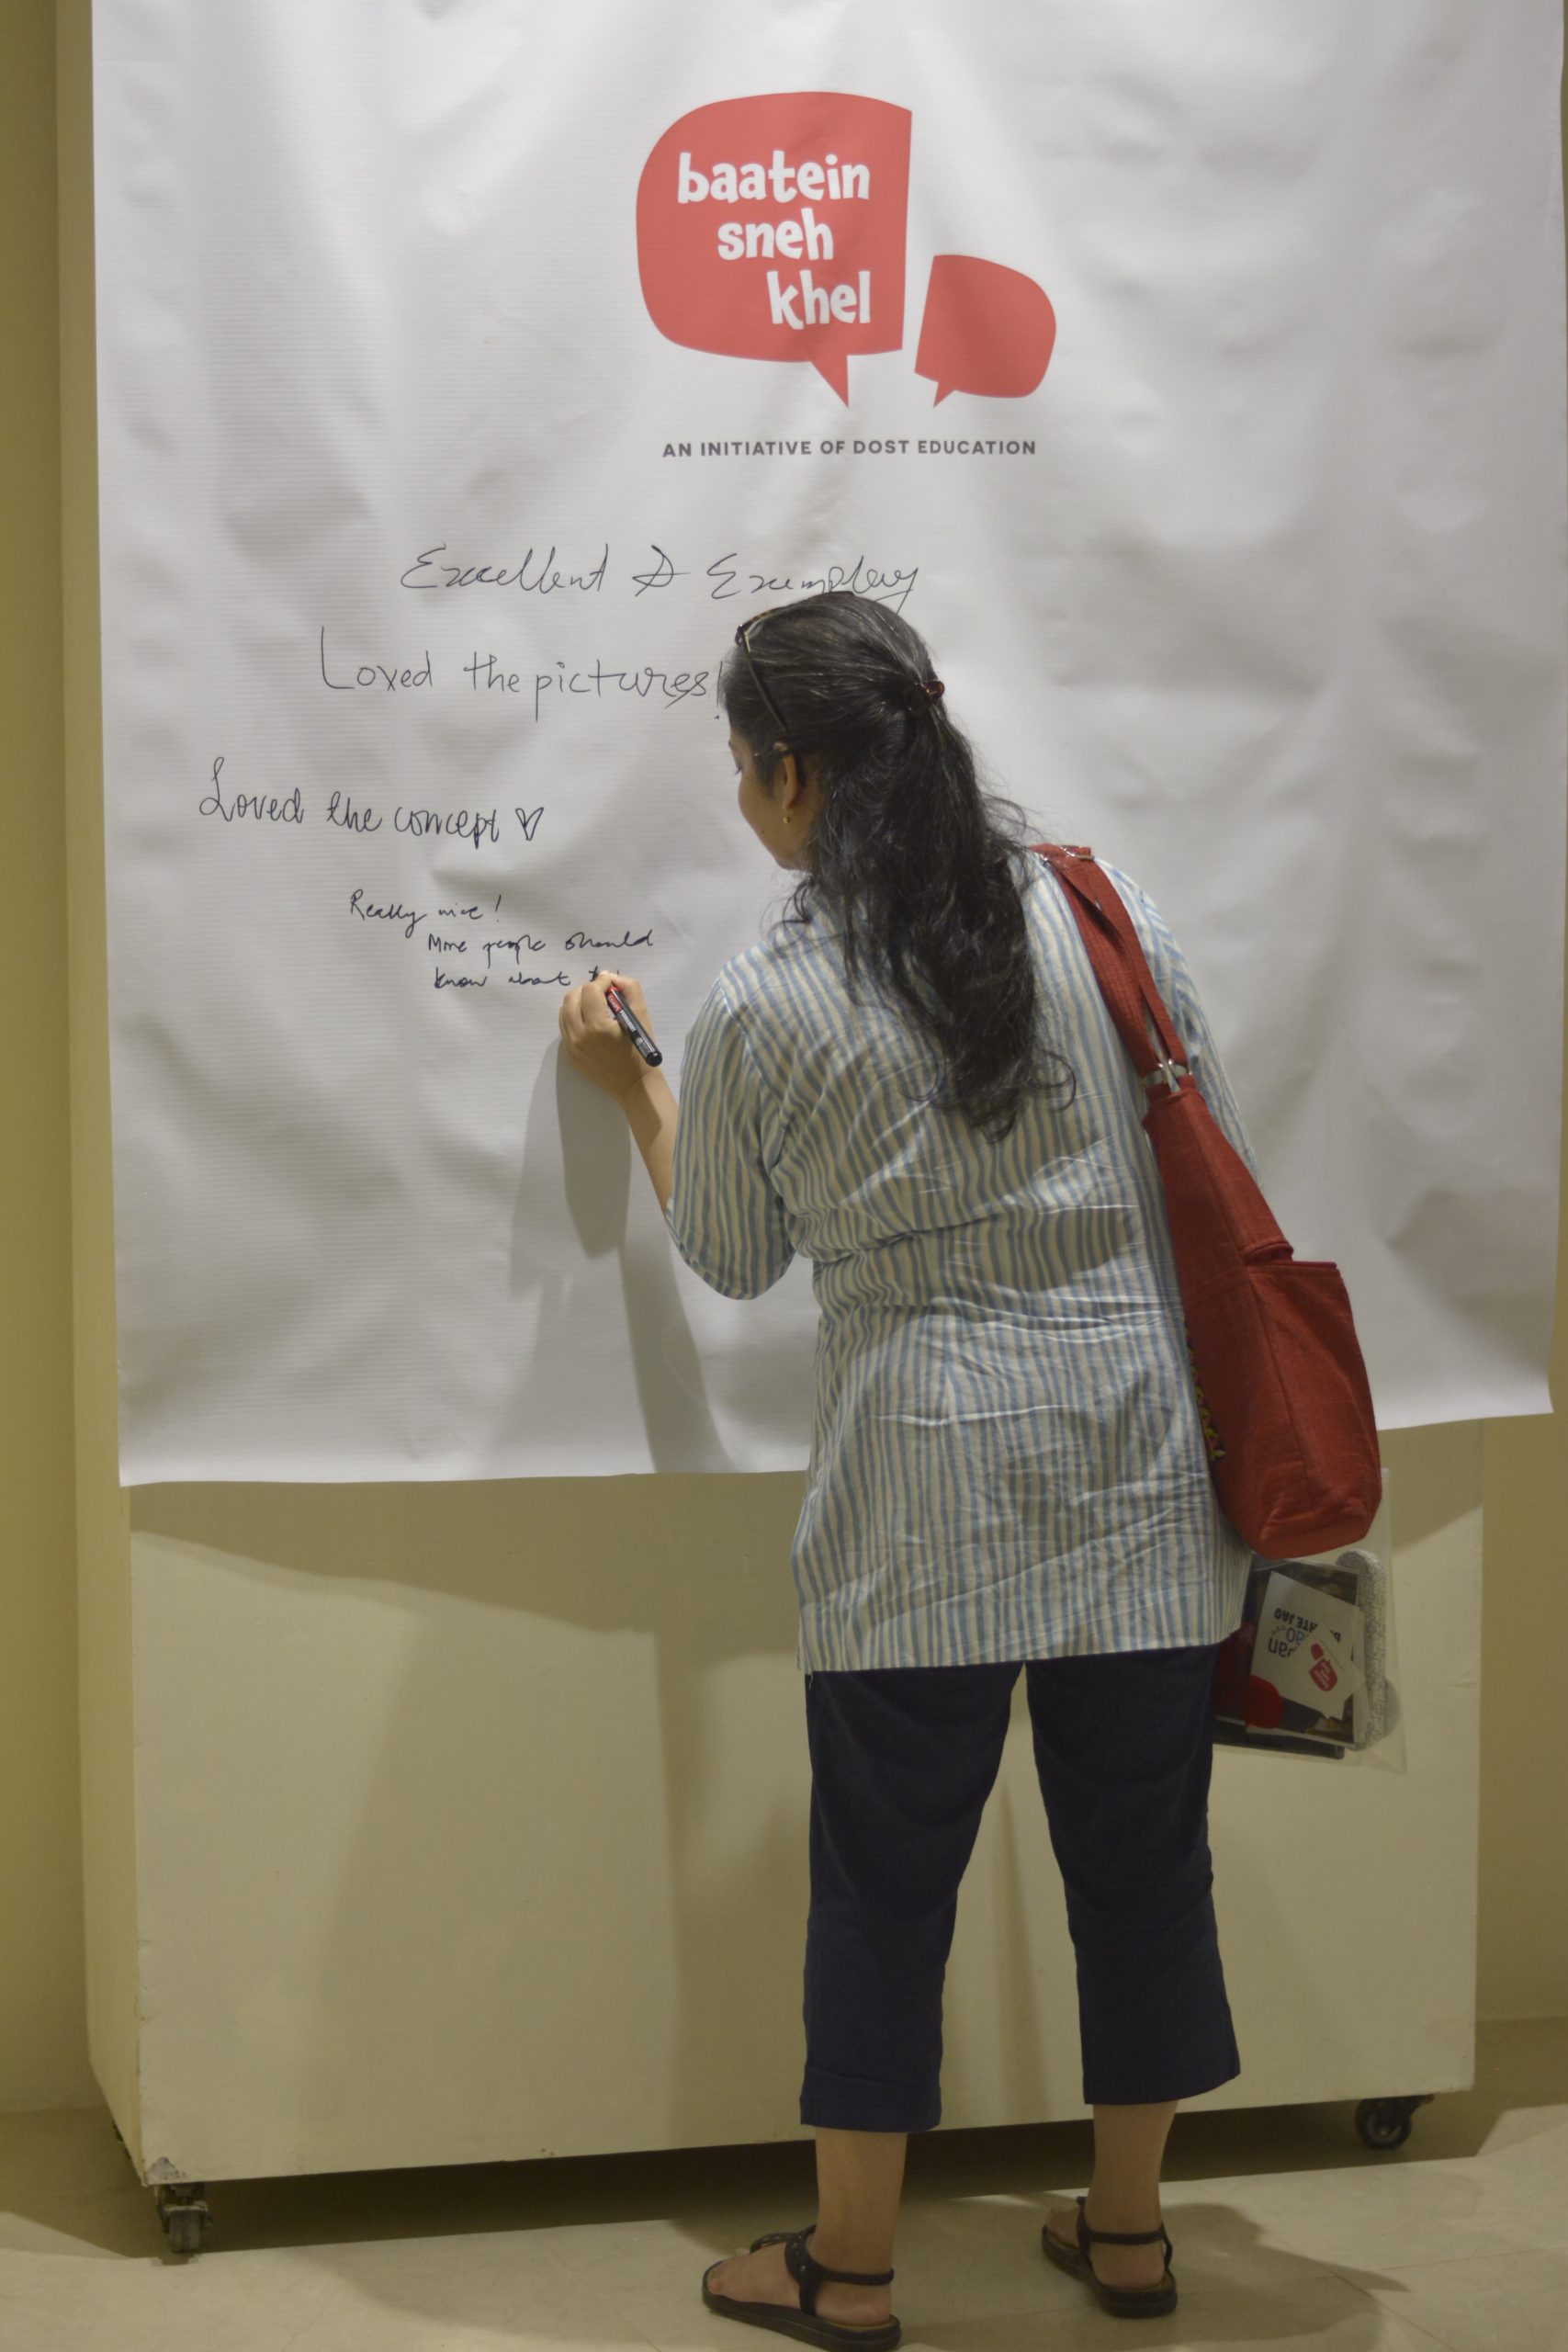 baatein
sneh
khel
AN INITIATIVE OF DOST EDUCATION
Excellent & Exemplary
Loved the pictures!
Loved the concept ♡
Really nice!
More people should
know about